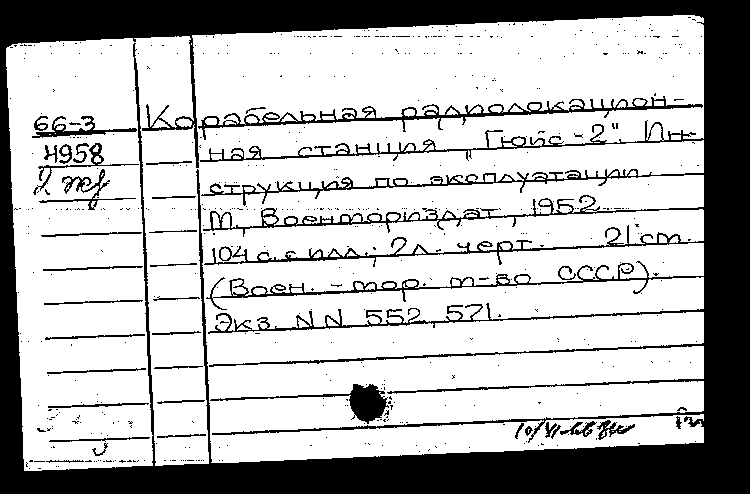 66-3 Корабельная радиолокацион-
4958 ная станция „Гюйс-2". Ин-
2 экз струкция по эксплуатации.
М., Военмориздат, 1952.
104 с. с илл.; 2 л. черт. 21 cm.
(Воен.-мор. м-во СССР).
Экз. NN 552, 571.
10/VI-66